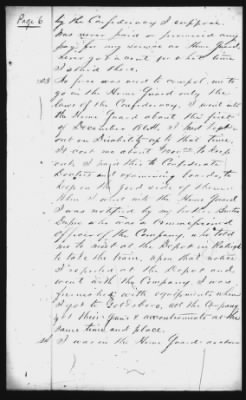 Page 6
by the Confederacy I suppose.
Was never paid or promised any
pay for my service as Home Guard.
Never got a cent for what time
I served there.
23 No force was used to compel me to
go in the Home Guard only the
laws of the Confederacy. I went into
the Home Guard about the first
of December 1864, I had kept
out on Disability up to that time,
It cost me about to keep
out. I paid this to Confederate
Doctors and examining boards, to
keep on the good side of them.
When I went into the Home Guard
I was notified by my
who was a commissioned
officer of the Company, who told
me to meet at the Depot in Raleigh
to take the train, upon that notice
I reported at the Depot and
went with the Company. I was
furnished with equipments when
I got to Goldsboro, all the Company
got their guns & accoutrements at the
same time and place.
24 I was in the Home Guard